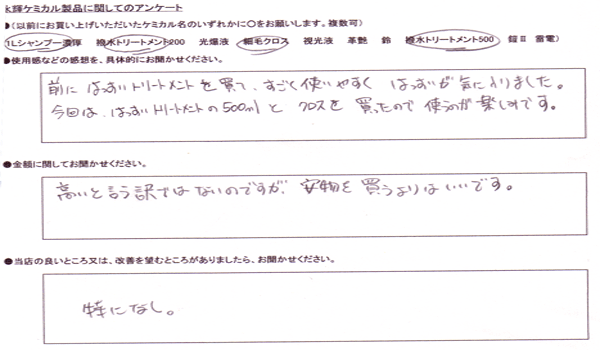 k輝ケミカル製品に関してのアンケート
♦(以前にお買い上げいただいたケミカル名のいずれかに〇をお願いします。複数可)
1Lシャンプー濃厚 撥水トリートメント200 光爆液 細毛クロス 視光液 革艶 鈴 撥水トリートメント500 鎧Ⅱ 雷電)
●使用感などの感想を、具体的にお聞かせください。
前に はっすいトリートメントを買て、すごく使いやすく はっすいが気に入りました。
今回は、はっすいトリートメントの500mlと クロスを 買ったので 使うのが楽しみです。
●金額に関してお聞かせください。
高いと言う訳ではないのですが、安物を買うよりはいいです。
●当店の良いところ又は、改善を望むところがありましたら、お聞かせください。
特になし。